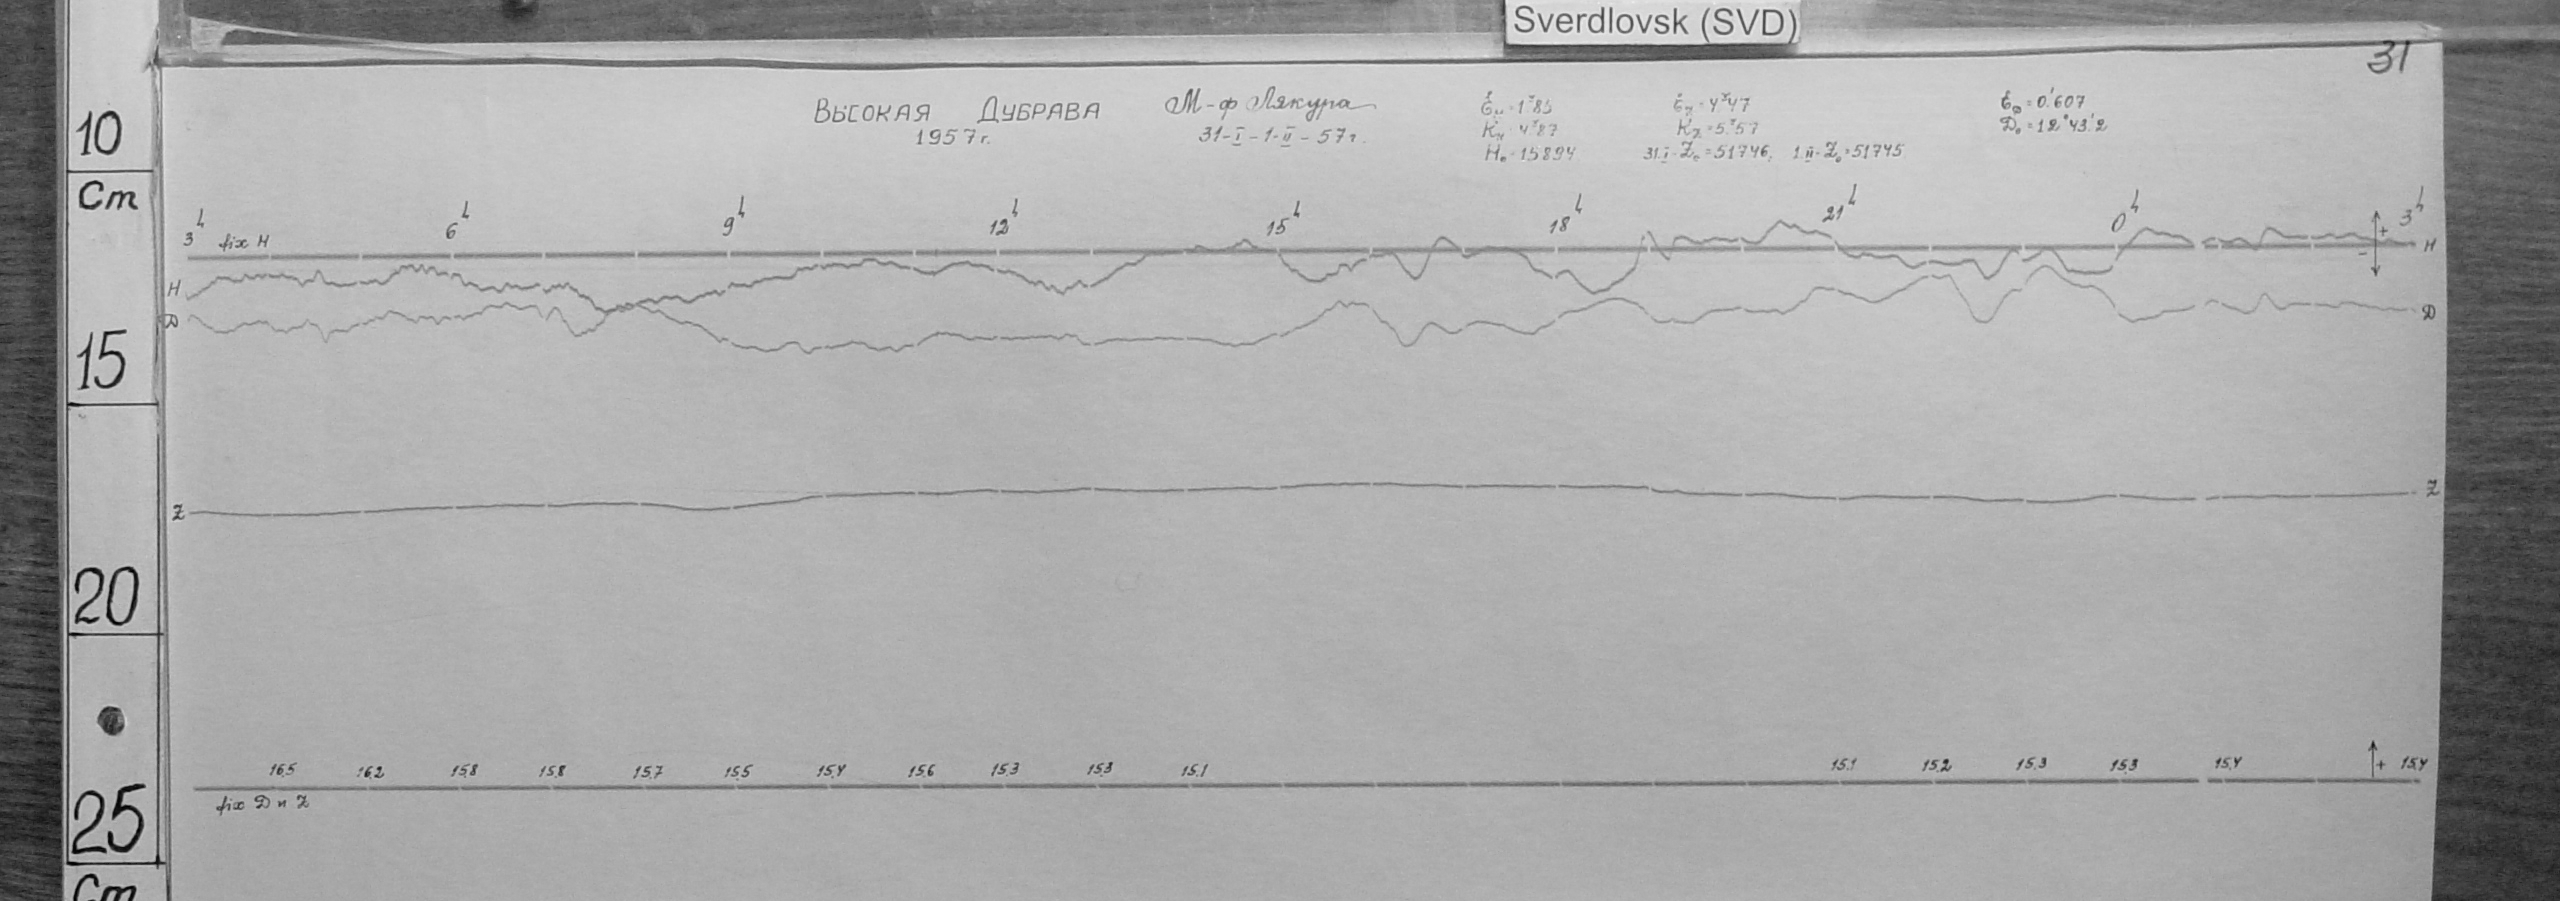 Sverdlovsk (SVD)
31
10
Cm
15
20
25
Cm
Высокая Дубрава
1957 г.
М-ф Лякура
31-I-1-II-57 г.
Ɛн=1ˠ85
Кн=4ˠ87
H₀=15894
Ɛz=4ˠ47
Kz=5ˠ57
31.I-Z₀=51746, 1.II-Z₀=51745
ƐD=0'.607
D₀=12°43'.2
3h 6h 9h 12h 15h 18h 21h 0h 3h
fix H
+
-
H H
D D
Z Z
16,5 16,2 15,8 15,8 15,7 15,5 15,4 15,6 15,3 15,3 15,1 15,1 15,2 15,3 15,3 15,4 + 15,4
fix D и Z